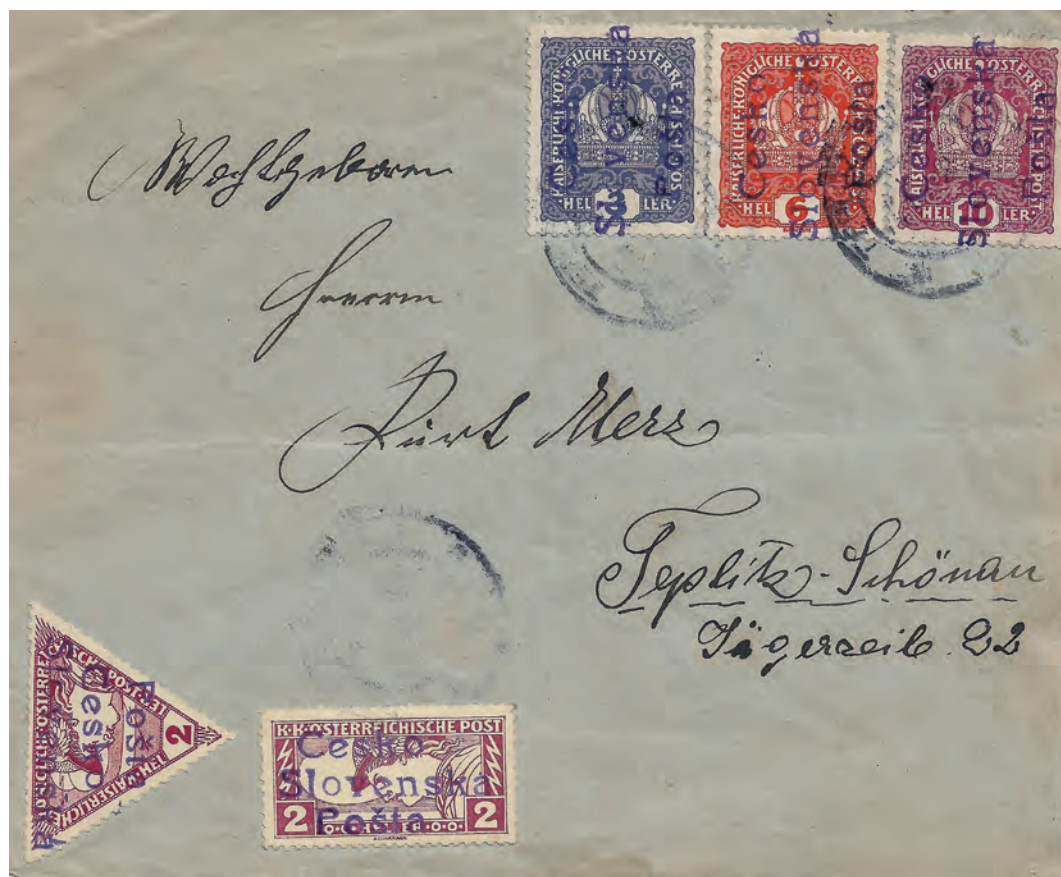 KAISERLICHE KÖNIGLICHE ÖSTERREICHISCHE POST
3
HELLER
Česko
Slovenska
Pošta
KAISERLICHE KÖNIGLICHE ÖSTERREICHISCHE POST
6
HELLER
Česko
Slovenska
Pošta
KAISERLICHE KÖNIGLICHE ÖSTERREICHISCHE POST
10
HELLER
Česko
Slovenska
Pošta
Wohlgeboren
Herrn
Kurt Merz
Teplitz-Schönau
Jägerzeile 22
2
Pošta
Česko
Slovenska
K·K·ÖSTERREICHISCHE POST
2 HELLER 2
Česko
Slovenska
Pošta